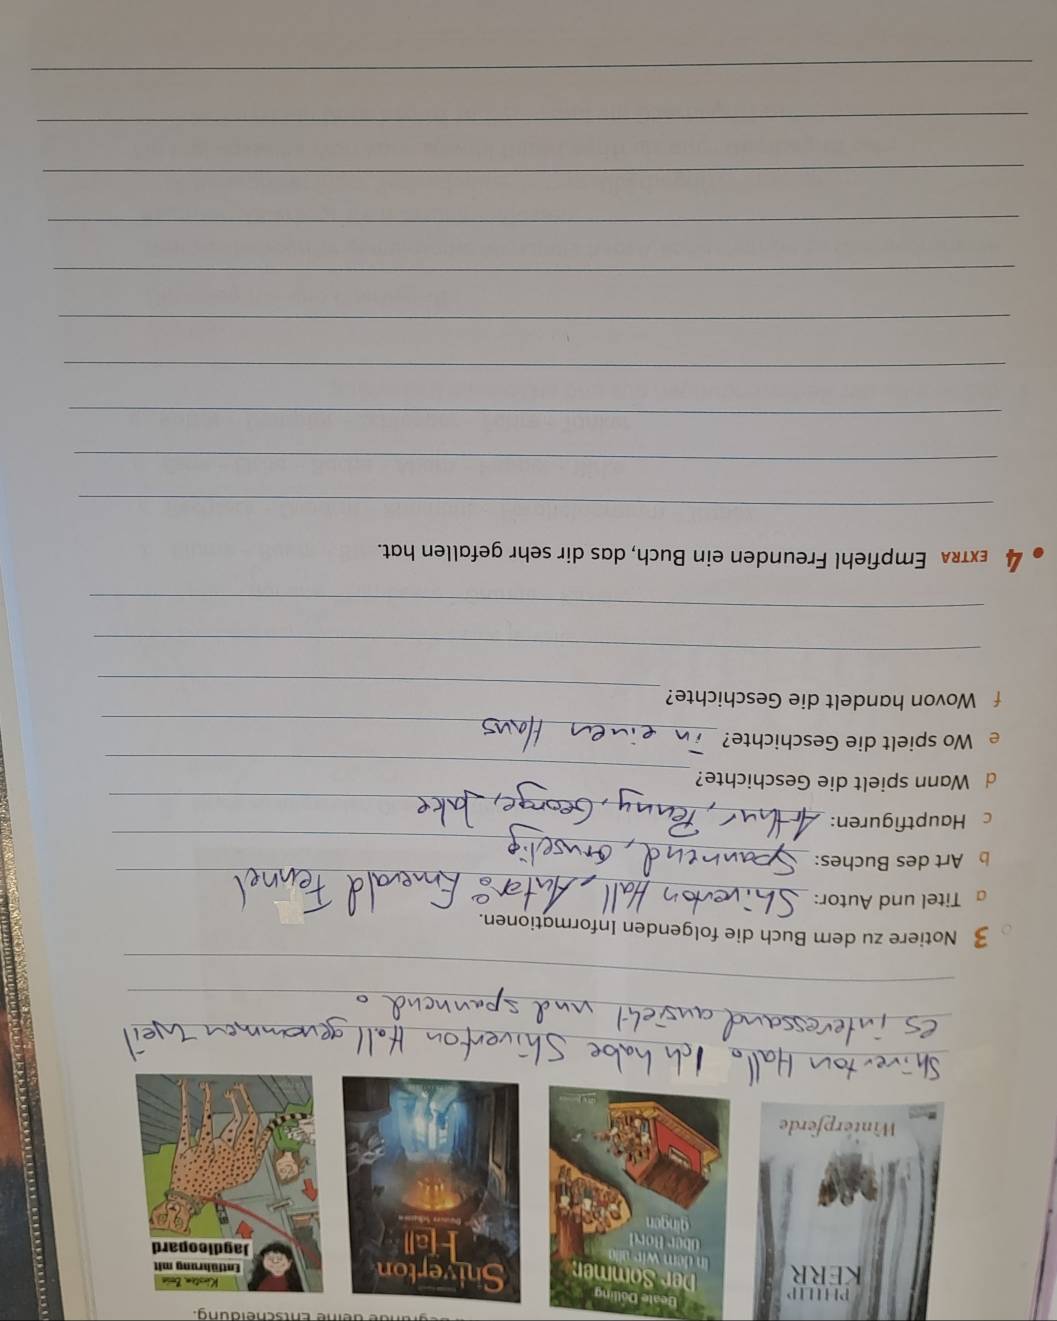 deine Entscheidung.
PHILIP
KERR
Winterpferde
Beate Dölling
Der Sommer,
in dem wir alle
über Bord
gingen
Shiverton
Hall
Kirsten Boie
Entführung mit
Jagdleopard
Shiverton Hall. Ich habe Shiverton Hall genommen weil
es interessand aussieht und spannend.
3 Notiere zu dem Buch die folgenden Informationen.
a Titel und Autor: Shiverton Hall, Autor: Emerald Fennel
b Art des Buches: Spannend, Gruselig
c Hauptfiguren: Arthur, Penny, George, Jake
d Wann spielt die Geschichte?
e Wo spielt die Geschichte? in einen Haus
f Wovon handelt die Geschichte?
4 EXTRA Empfiehl Freunden ein Buch, das dir sehr gefallen hat.